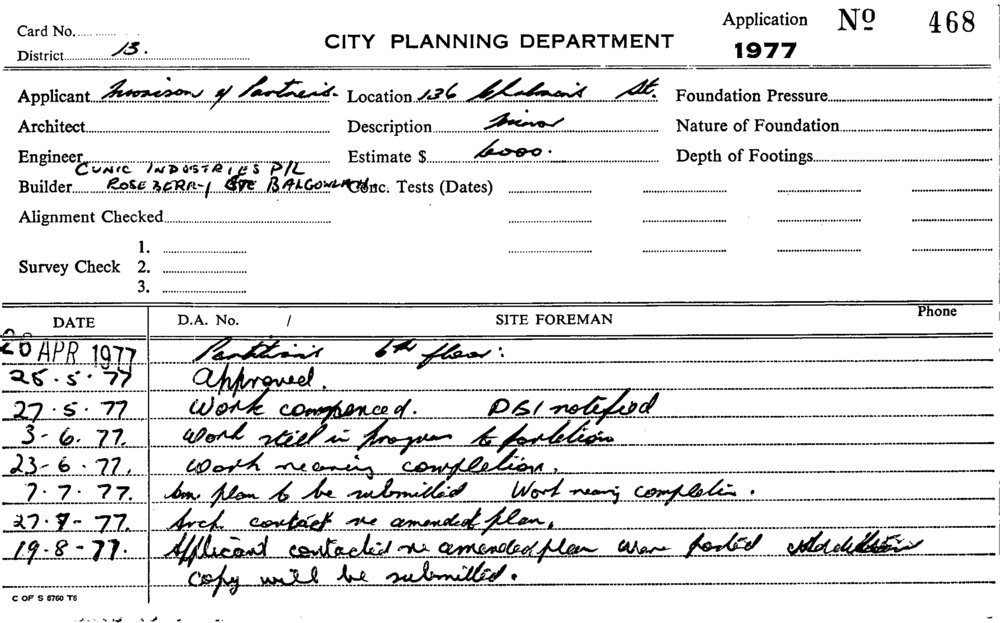 Card No.
District 13.
CITY PLANNING DEPARTMENT
Application No 468
1977
Applicant Morison & Partners. Location 136 Chalmers St. Foundation Pressure
Architect Description Minor Nature of Foundation
Engineer Estimate $ 6000. Depth of Footings
CUNIC INDUSTRIES P/L
Builder ROSEBERRY BALGOWLAH Conc. Tests (Dates)
Alignment Checked
1.
Survey Check 2.
3.
DATE D.A. No. / SITE FOREMAN Phone
20 APR 1977 Partitions 6th floor:
25.5.77 Approved.
27.5.77 Work commenced. DBI notified
3-6.77. Work still in progress to partitions
23-6.77. Work nearing completion.
7.7.77. Am plan to be submitted Work nearing completion.
27-7-77. Arch contact re amended plan.
19-8-77. Applicant contacted re amended plan were posted
copy will be submitted.
C OF S 6760 T6